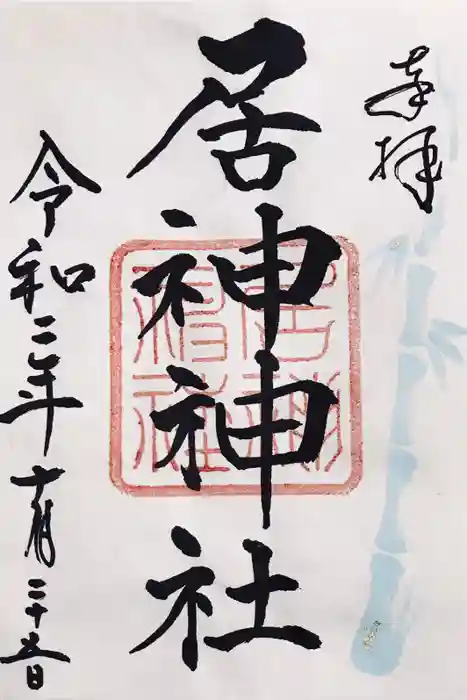 奉拝
居神神社
居神神社
令和三年十月二十五日